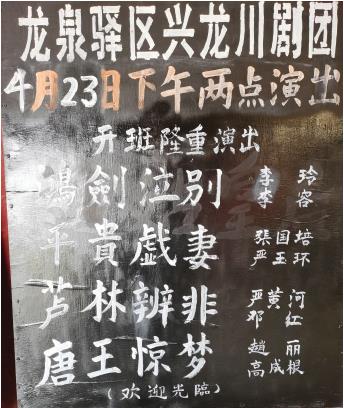 龙泉驿区兴龙川剧团
4月23日下午两点演出
开班隆重演出
鴻劍泣别
李 玲
李 容
平貴戯妻
張国培
严玉环
芦林辨非
严黄河
邓 红
唐王惊梦
趙 丽
高成根
(欢迎光臨)